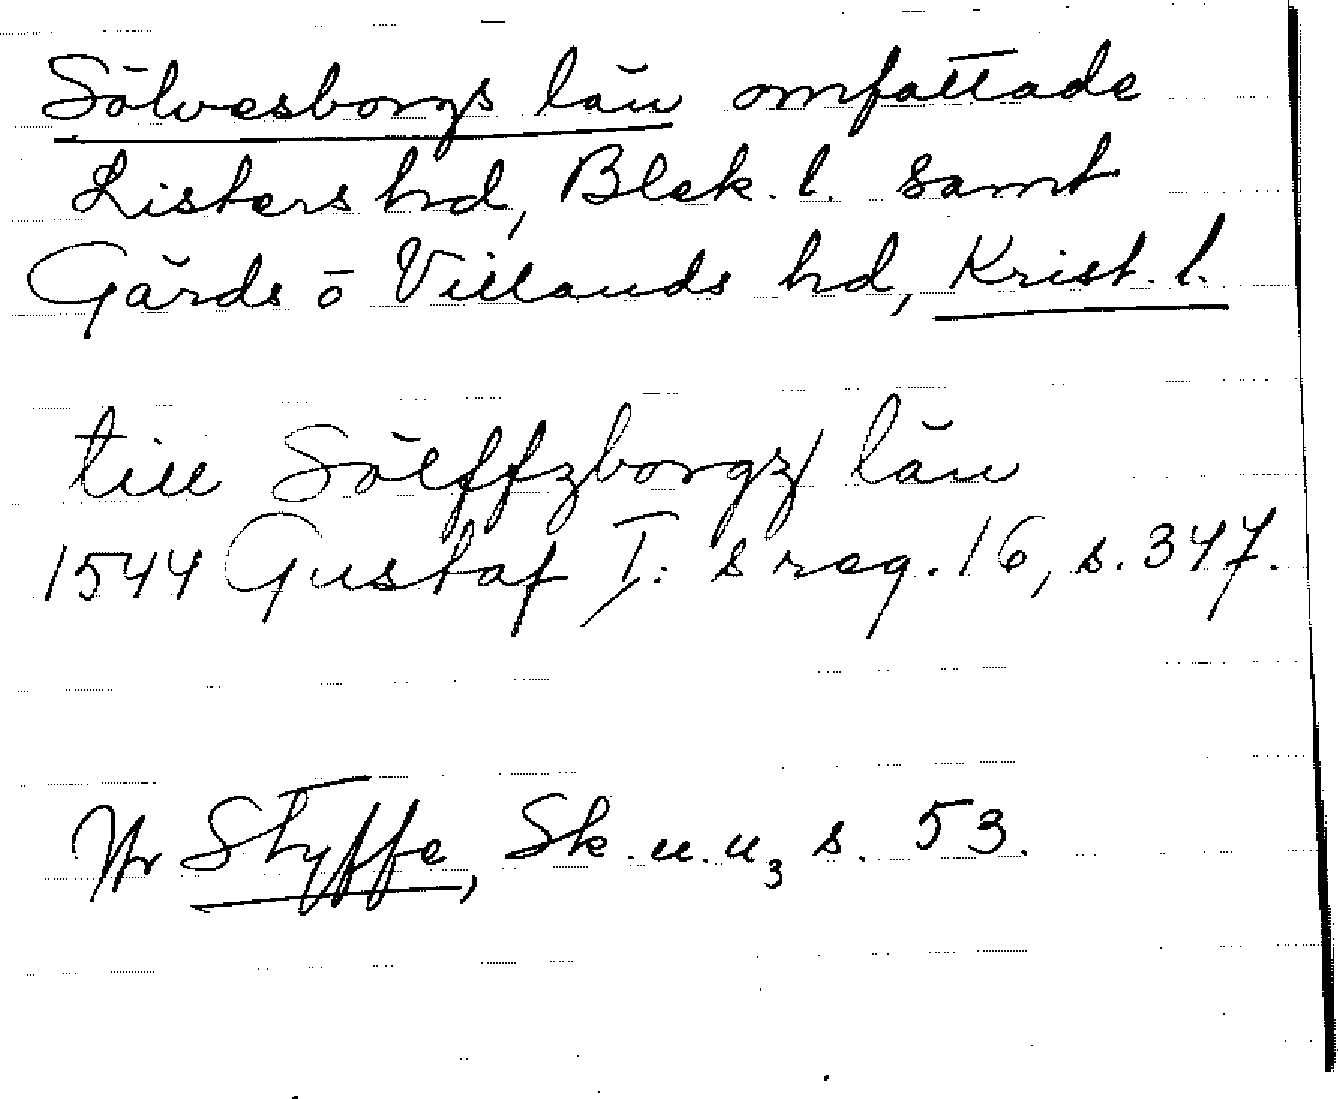 Sölvesborgs län omfattade
Listers hd, Blek. l. samt
Gärds o Villands hd, Krist. l.
till Sölffzborgz län
1544 Gustaf I:s reg. 16, s. 347.
Jfr Styffe, Sk. u. u₃ s. 53.